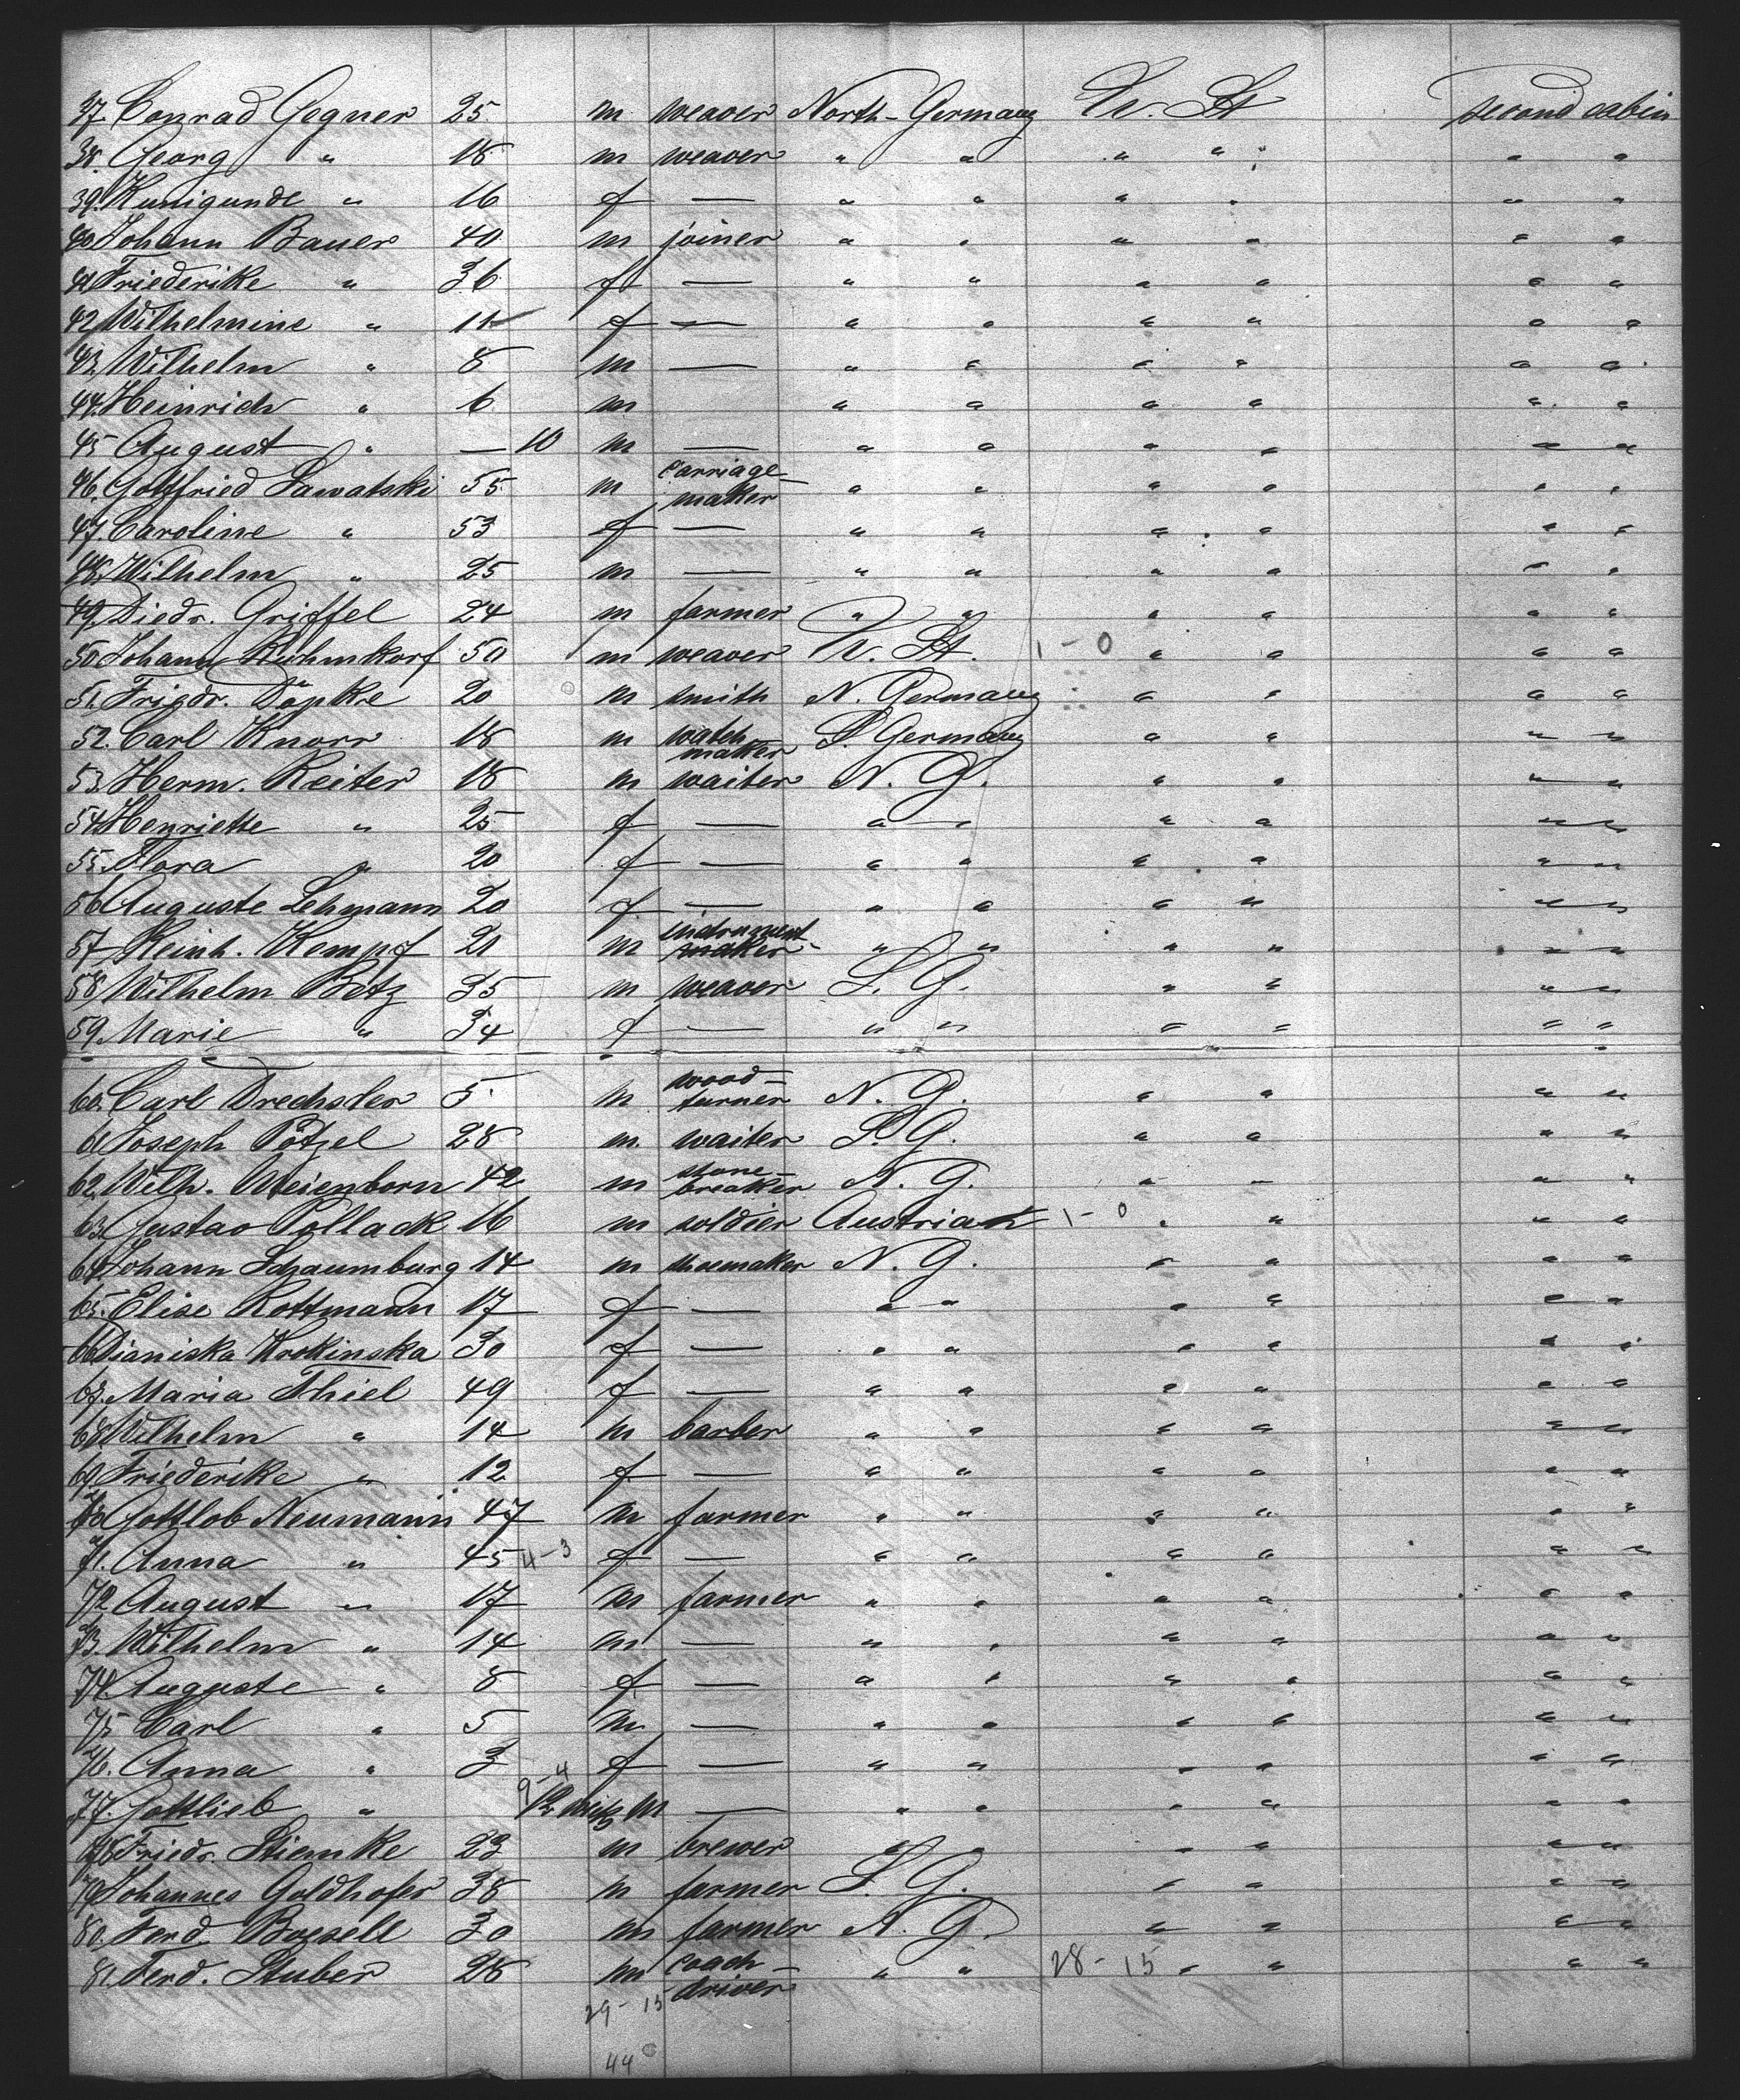 37. Conrad Gegner 25 m weaver North-Germany U. St. second cabin
38. Georg " 18 m weaver " " " " " "
39. Kunigunde " 16 f — " " " " " "
40. Johann Bauer 40 m joiner " " " " " "
41. Friederike " 36 f — " " " " " "
42. Wilhelmine " 11 f — " " " " " "
43. Wilhelm " 8 m — " " " " " "
44. Heinrich " 6 m " " " " " "
45. August " — 10 m — " " " " " "
46. Gottfried Sawatski 55 m carriage-maker " " " " " "
47. Caroline " 53 f — " " " " " "
48. Wilhelm " 25 m — " " " " " "
49. Diedr. Griffel 24 m farmer " " " " " "
50. Johann Ruhmkorf 50 m weaver U. St. 1-0 " " " "
51. Friedr. Döpke 20 m smith N. Germany " " " "
52. Carl Knorr 18 m watch maker S. Germany " " " "
53. Herm. Reiter 18 m waiter N. G. " " " "
54. Henriette " 25 f — " " " " " "
55. Flora " 20 f — " " " " " "
56. Auguste Lehmann 20 f — " " " " " "
57. Reinh. Kempf 21 m instrument-maker " " " " " "
58. Wilhelm Betz 35 m weaver S. G. " " " "
59. Marie " 34 f — " " " " " "
60. Carl Drechsler 5 m wood-turner N. G. " " " "
61. Joseph Pötzel 28 m waiter S. G. " " " "
62. Wilh. Weienborn 42 m stone-breaker N. G. " " " "
63. Gustav Pollack 16 m soldier Austria 1-0 " " " "
64. Johann Schaumburg 14 m shoemaker N. G. " " " "
65. Elise Rottmann 17 f — " " " " " "
66. Krokinska 30 f — " " " " " "
67. Maria Thiel 49 f — " " " " " "
68. Wilhelm " 14 m barber " " " " " "
69. Friederike " 12 f — " " " " " "
70. Gottlob Neumann 47 m farmer " " " " " "
71. Anna " 45 4-3 f — " " " " " "
72. August " 17 m farmer " " " " " "
73. Wilhelm " 14 m — " " " " " "
74. Auguste " 8 f — " " " " " "
75. Carl " 5 m — " " " " " "
76. Anna " 3 f — " " " " " "
9-4
77. Gottlieb " 12 m — " " " " " "
78. Friedr. Stiemke 23 m brewer " " " " " "
79. Johannes Goldhofer 38 m farmer S. G. " " " "
80. Ferd. Boesell 30 m farmer N. G. " " " "
81. Ferd. Stuber 28 m coach-driver " " 28-15 " " " "
29-15
44